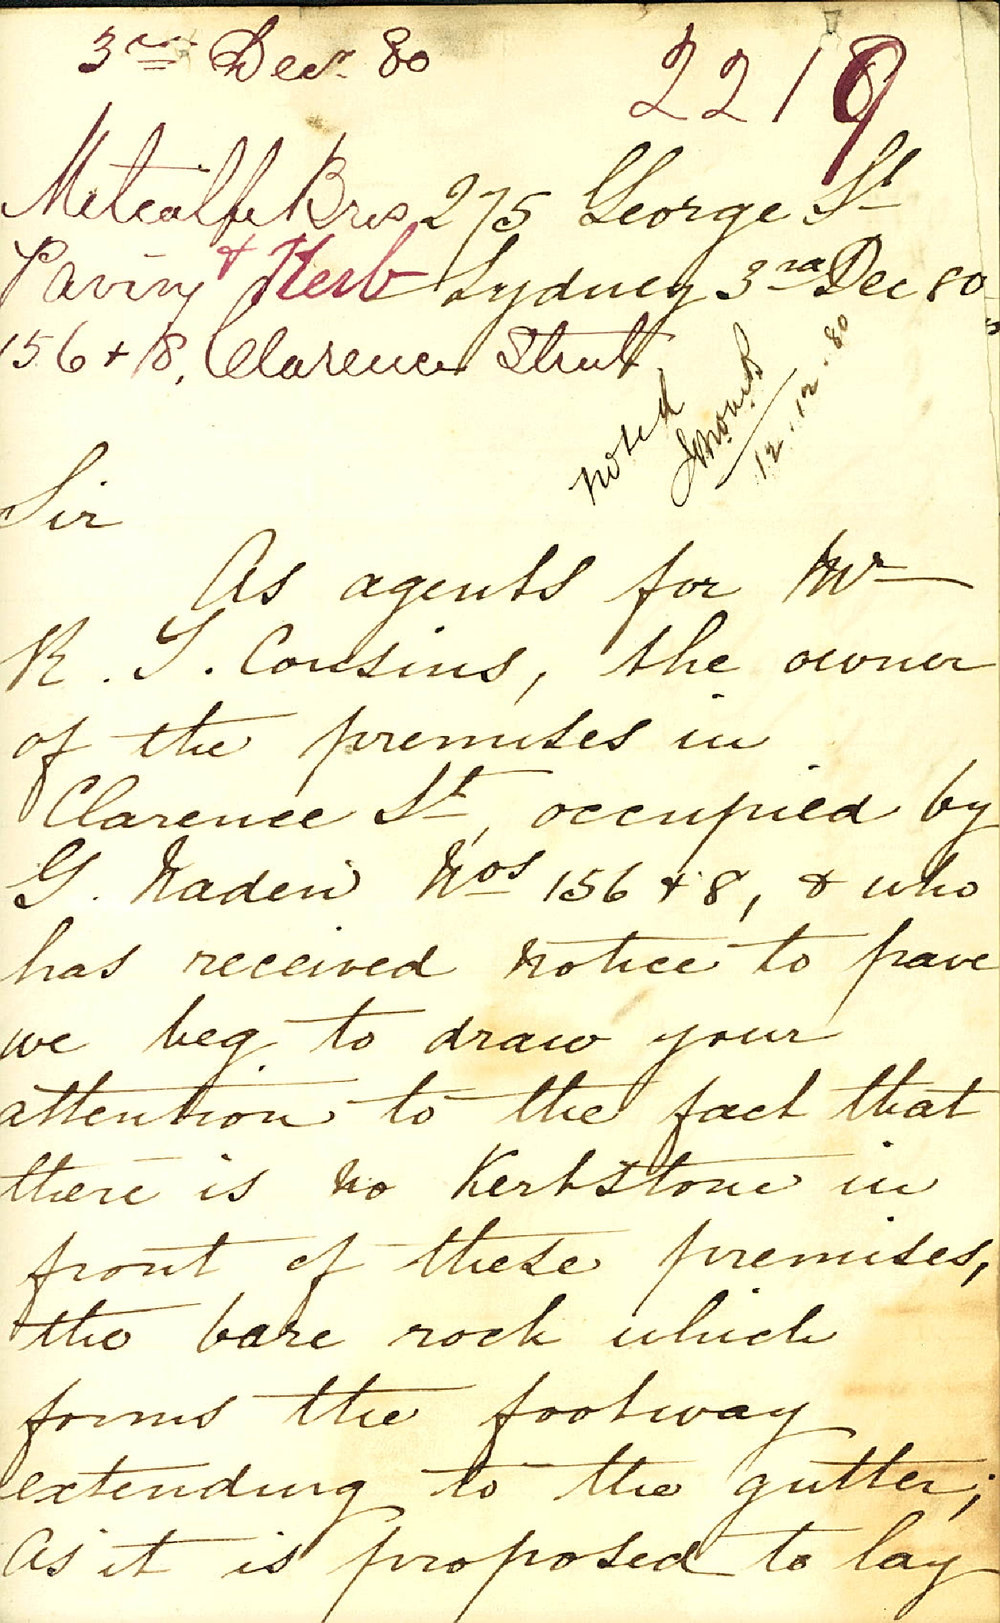 3rd Decr 80
2219
Metcalfe Bros
Paving & Kerb
156 + 8, Clarence Street
275 George St
Sydney 3rd Dec 80
noted
12.12.80
Sir
As agents for Mr
R. T. Cousins, the owner
of the premises in
Clarence St, occupied by
G. Naden Nos 156 + 8, & who
has received notice to pave
we beg to draw your
attention to the fact that
there is no Kerbstone in
front of these premises,
the bare rock which
forms the footway
extending to the gutter;
As it is proposed to lay